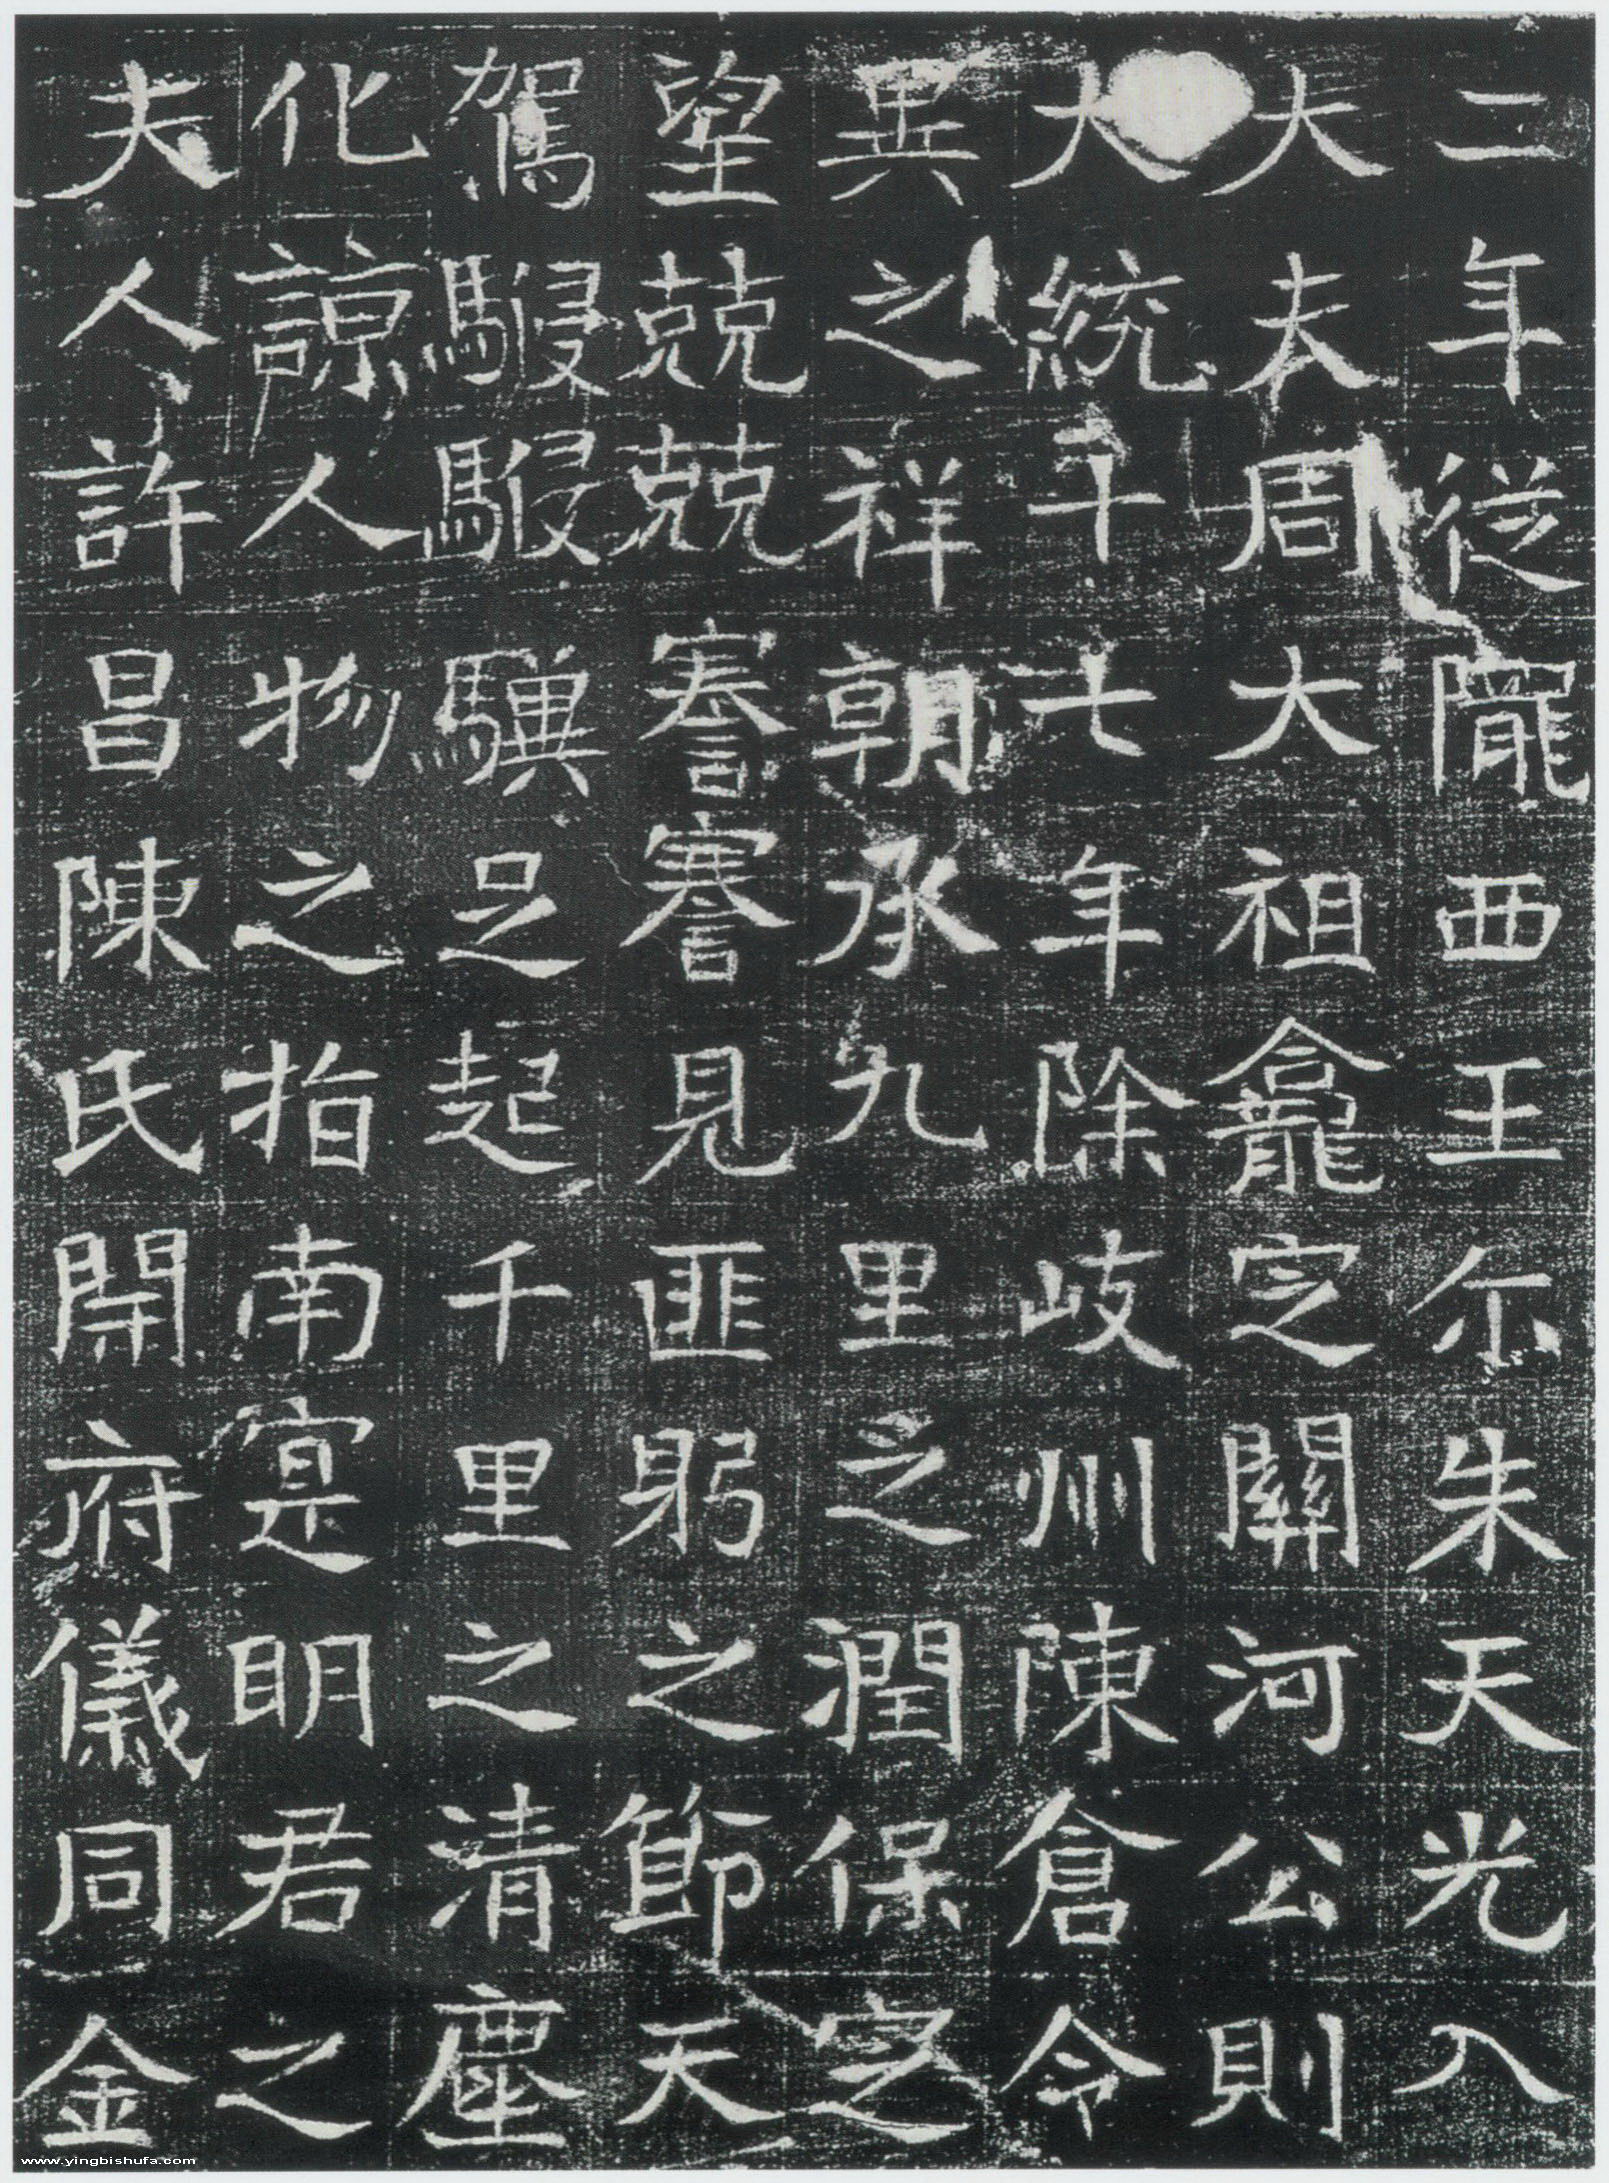 二年從隴西王尒朱天光入
大夫周大祖龕定關河公則
大統十七年除岐州陳倉令
異之祥朝承九里之潤保定
望兢兢謇謇見匪躬之節天
駕駸駸驥足起千里之清塵
化諒人物之指南寔明君之
夫人許昌陳氏開府儀同金
www.yingbishufa.com